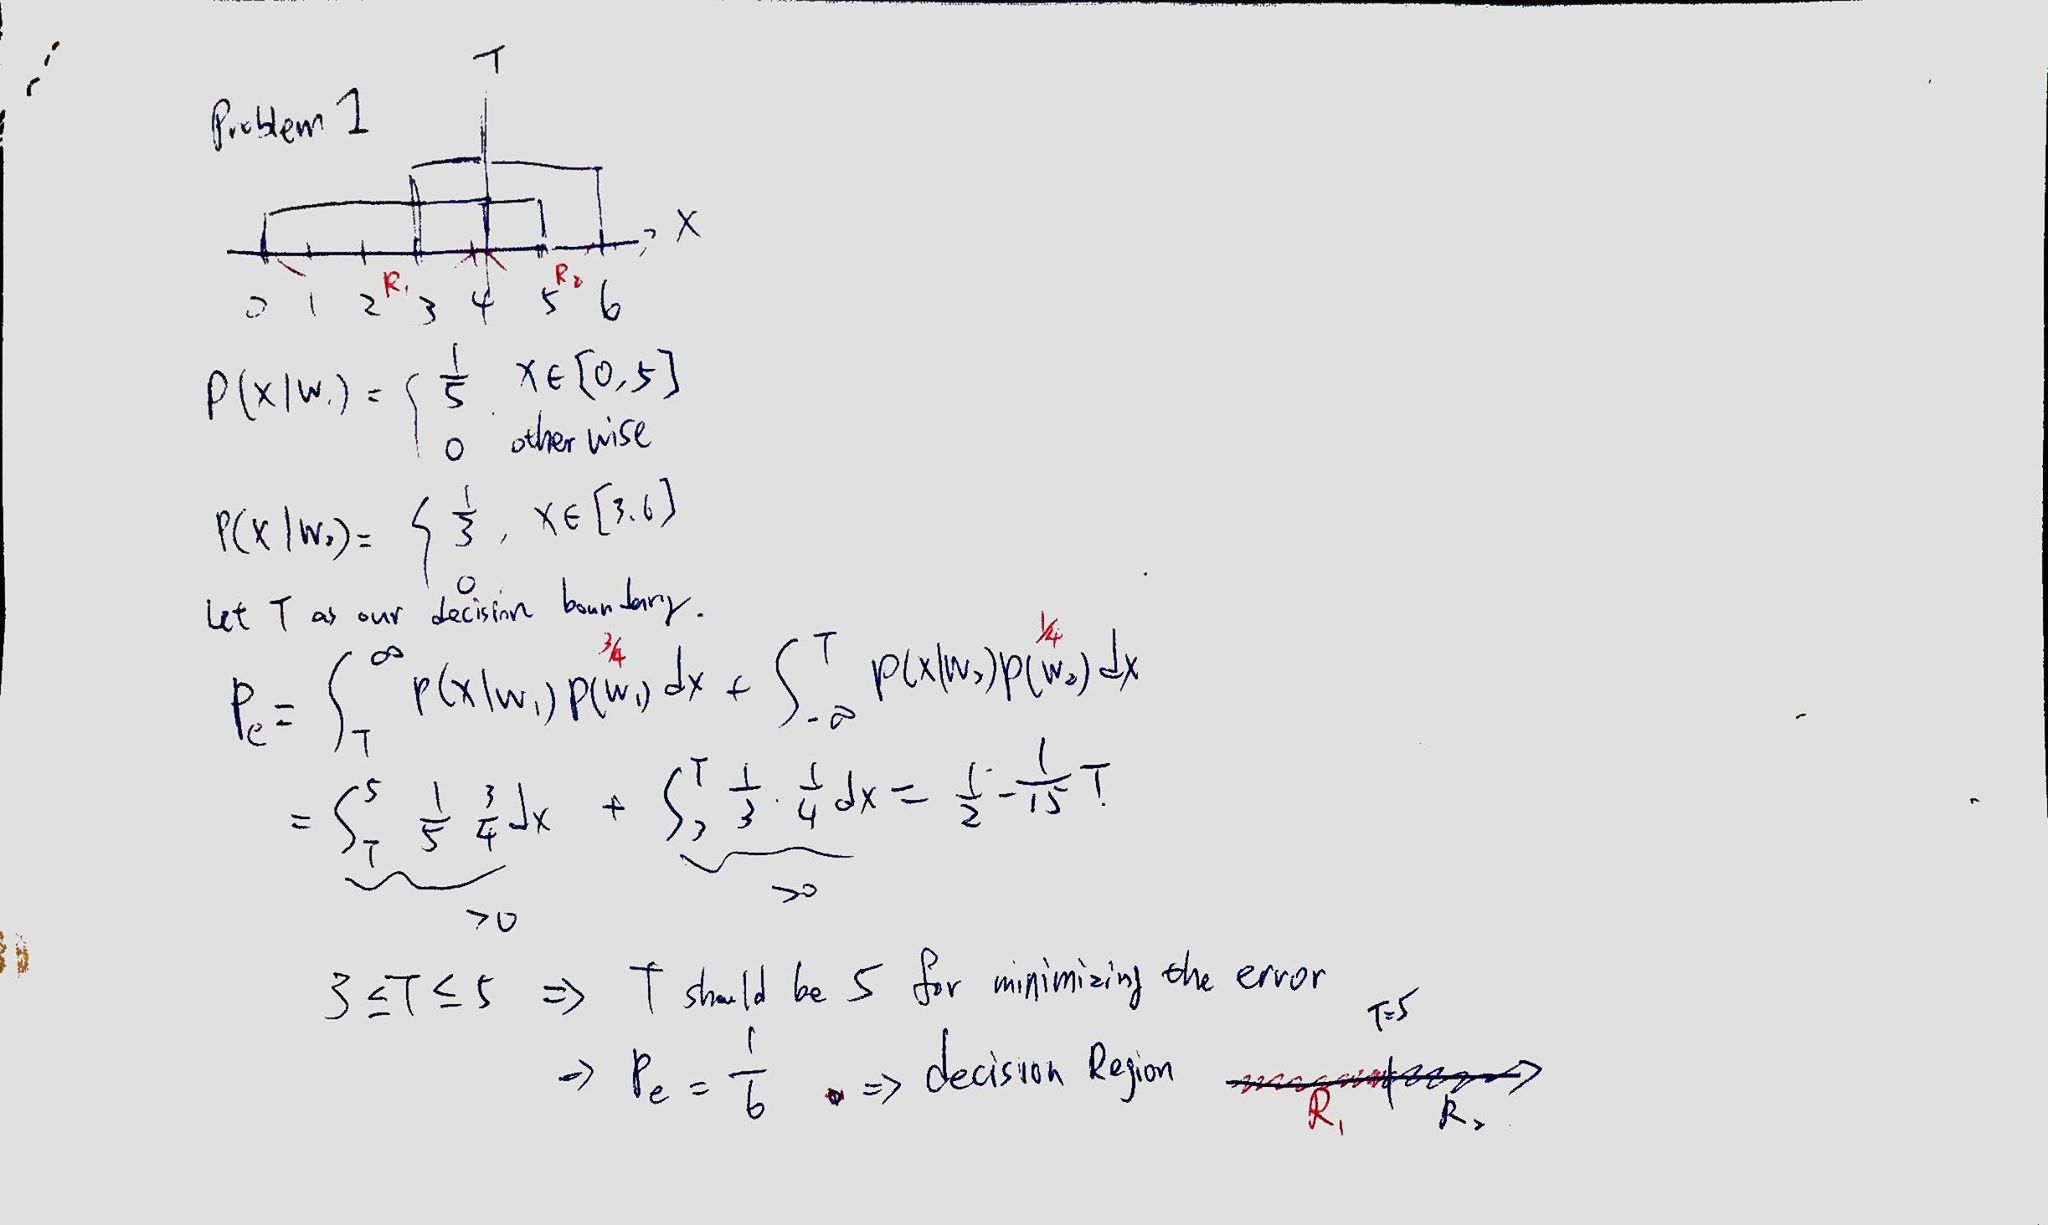 T
Problem 1
X
R₁ R₂
0 1 2 3 4 5 6
P(x|w₁) = { 1/5 x∈[0,5]
0 otherwise
P(x|w₂) = { 1/3, x∈[3.6]
0
Let T as our decision boundary.
3/4 1/4
Pe = ∫_T^∞ p(x|w₁)p(w₁)dx + ∫_{-∞}^T p(x|w₂)p(w₂)dx
= ∫_T^5 1/5 3/4 dx + ∫_3^T 1/3 · 1/4 dx = 1/2 - 1/15 T
>0 >0
3≤T≤5 => T should be 5 for minimizing the error
T=5
=> Pe = 1/6 . => decision Region
R₁ R₂